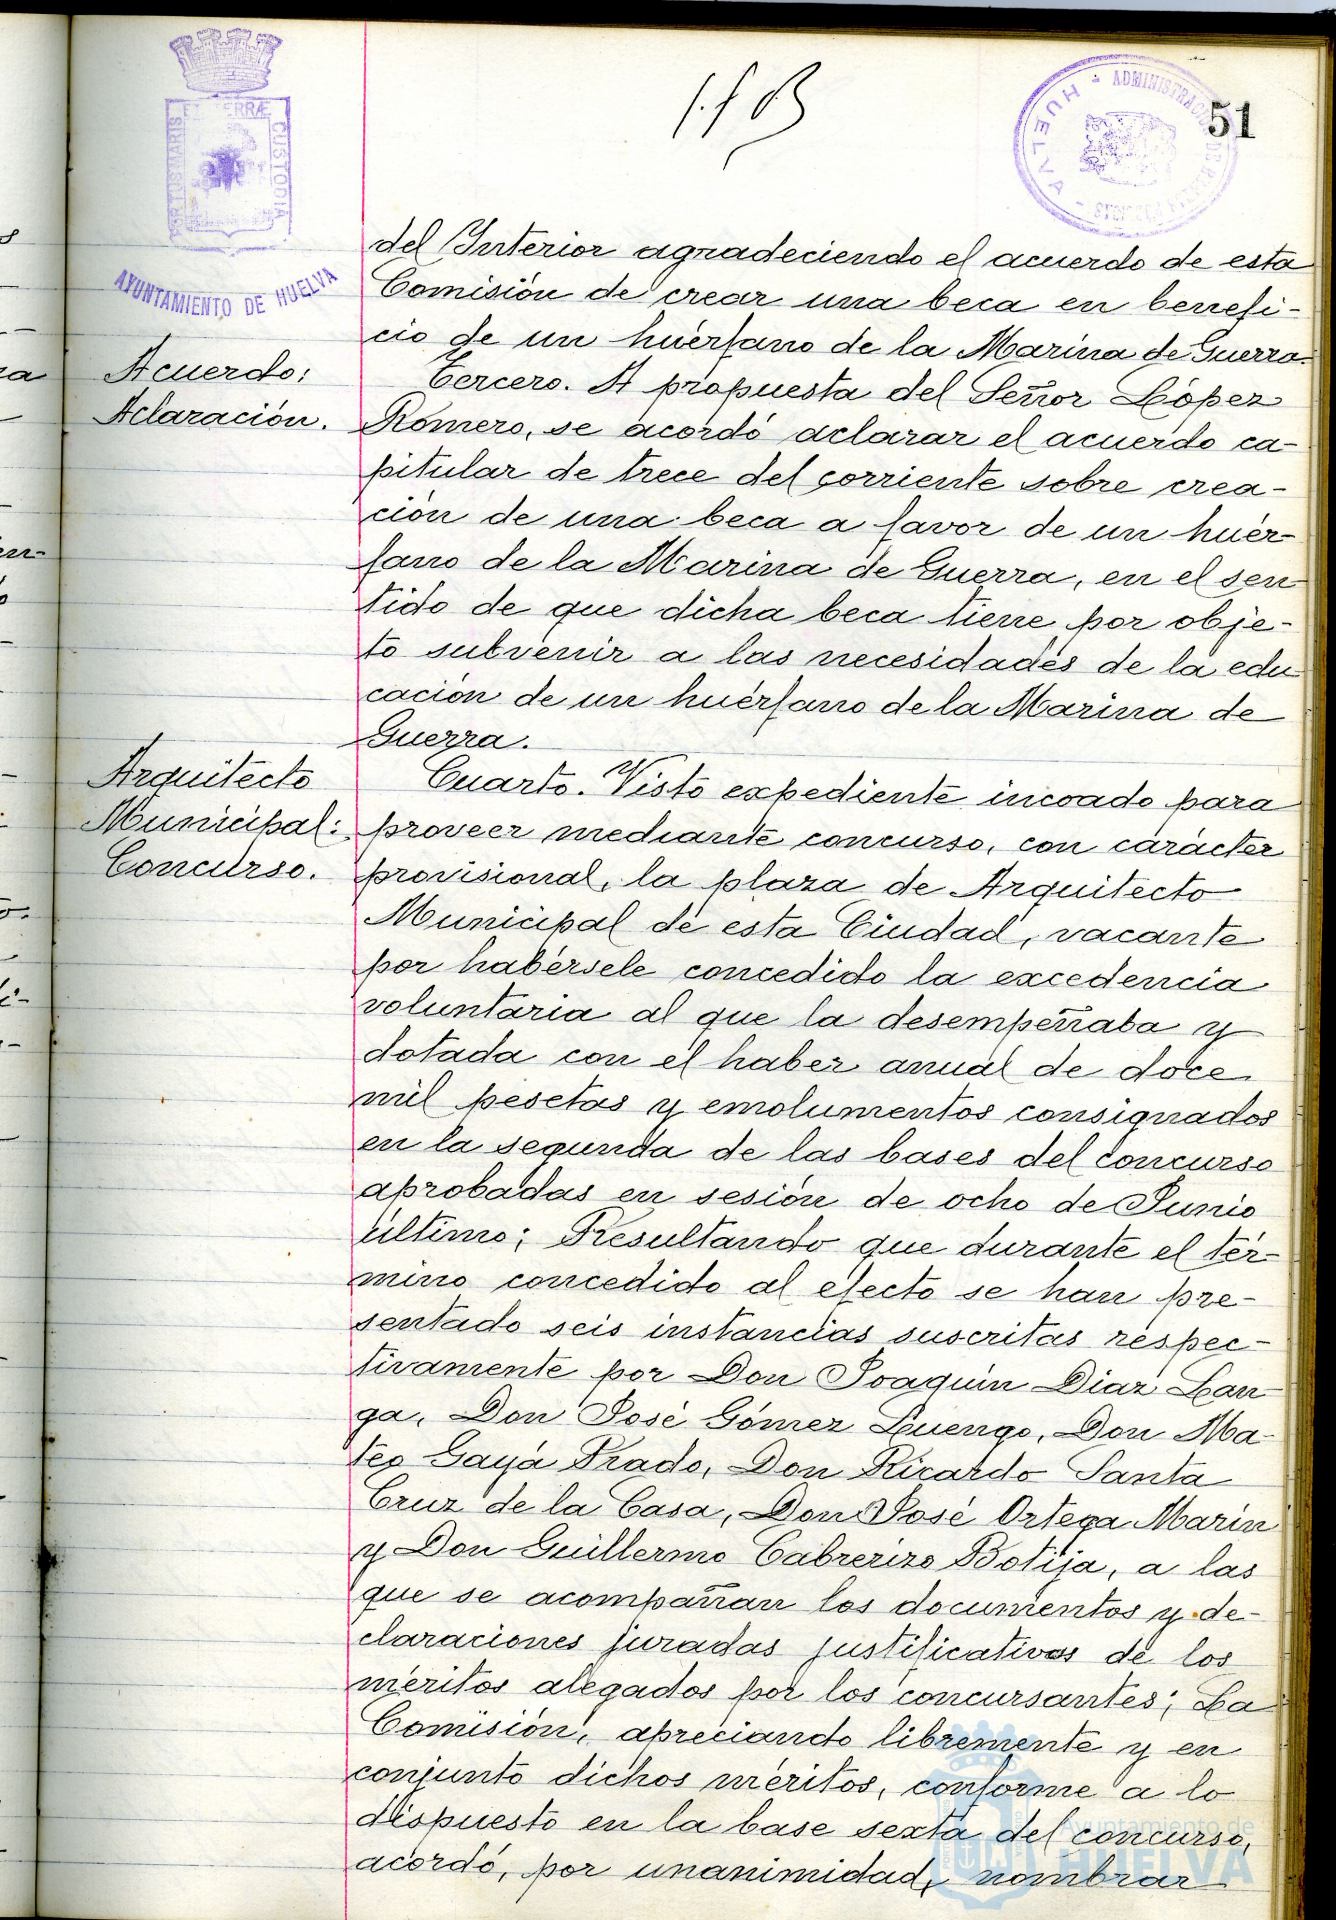 51
PORTUS MARIS
ET TERRÆ
CUSTODIA
AYUNTAMIENTO DE HUELVA
HUELVA
del Interior agradeciendo el acuerdo de esta
Comisión de crear una beca en benefi-
cio de un huérfano de la Marina de Guerra.
Acuerdo:
Aclaración.
Tercero. A propuesta del Señor López
Romero, se acordó aclarar el acuerdo ca-
pitular de trece del corriente sobre crea-
ción de una beca a favor de un huér-
fano de la Marina de Guerra, en el sen
tido de que dicha beca tiene por obje-
to subvenir a las necesidades de la edu
cación de un huérfano de la Marina de
Guerra.
Arquitecto
Municipal:
Concurso.
Cuarto. Visto expediente incoado para
proveer mediante concurso, con carácter
provisional, la plaza de Arquitecto
Municipal de esta Ciudad, vacante
por habérsele concedido la excedencia
voluntaria al que la desempeñaba y
dotada con el haber anual de doce
mil pesetas y emolumentos consignados
en la segunda de las bases del concurso
aprobadas en sesión de ocho de Junio
último; Resultando que durante el tér-
mino concedido al efecto se han pre-
sentado seis instancias suscritas respec-
tivamente por Don Joaquín Díaz Lan-
ga, Don José Gómez Luengo, Don Ma-
teo Gayá Prado, Don Ricardo Santa
Cruz de la Casa, Don José Ortega Marín
y Don Guillermo Cabrerizo Botija, a las
que se acompañan los documentos y de-
claraciones juradas justificativos de los
méritos alegados por los concursantes; La
Comisión, apreciando libremente y en
conjunto dichos méritos, conforme a lo
dispuesto en la base sexta del concurso,
acordó, por unanimidad, nombrar
Ayuntamiento de
HUELVA